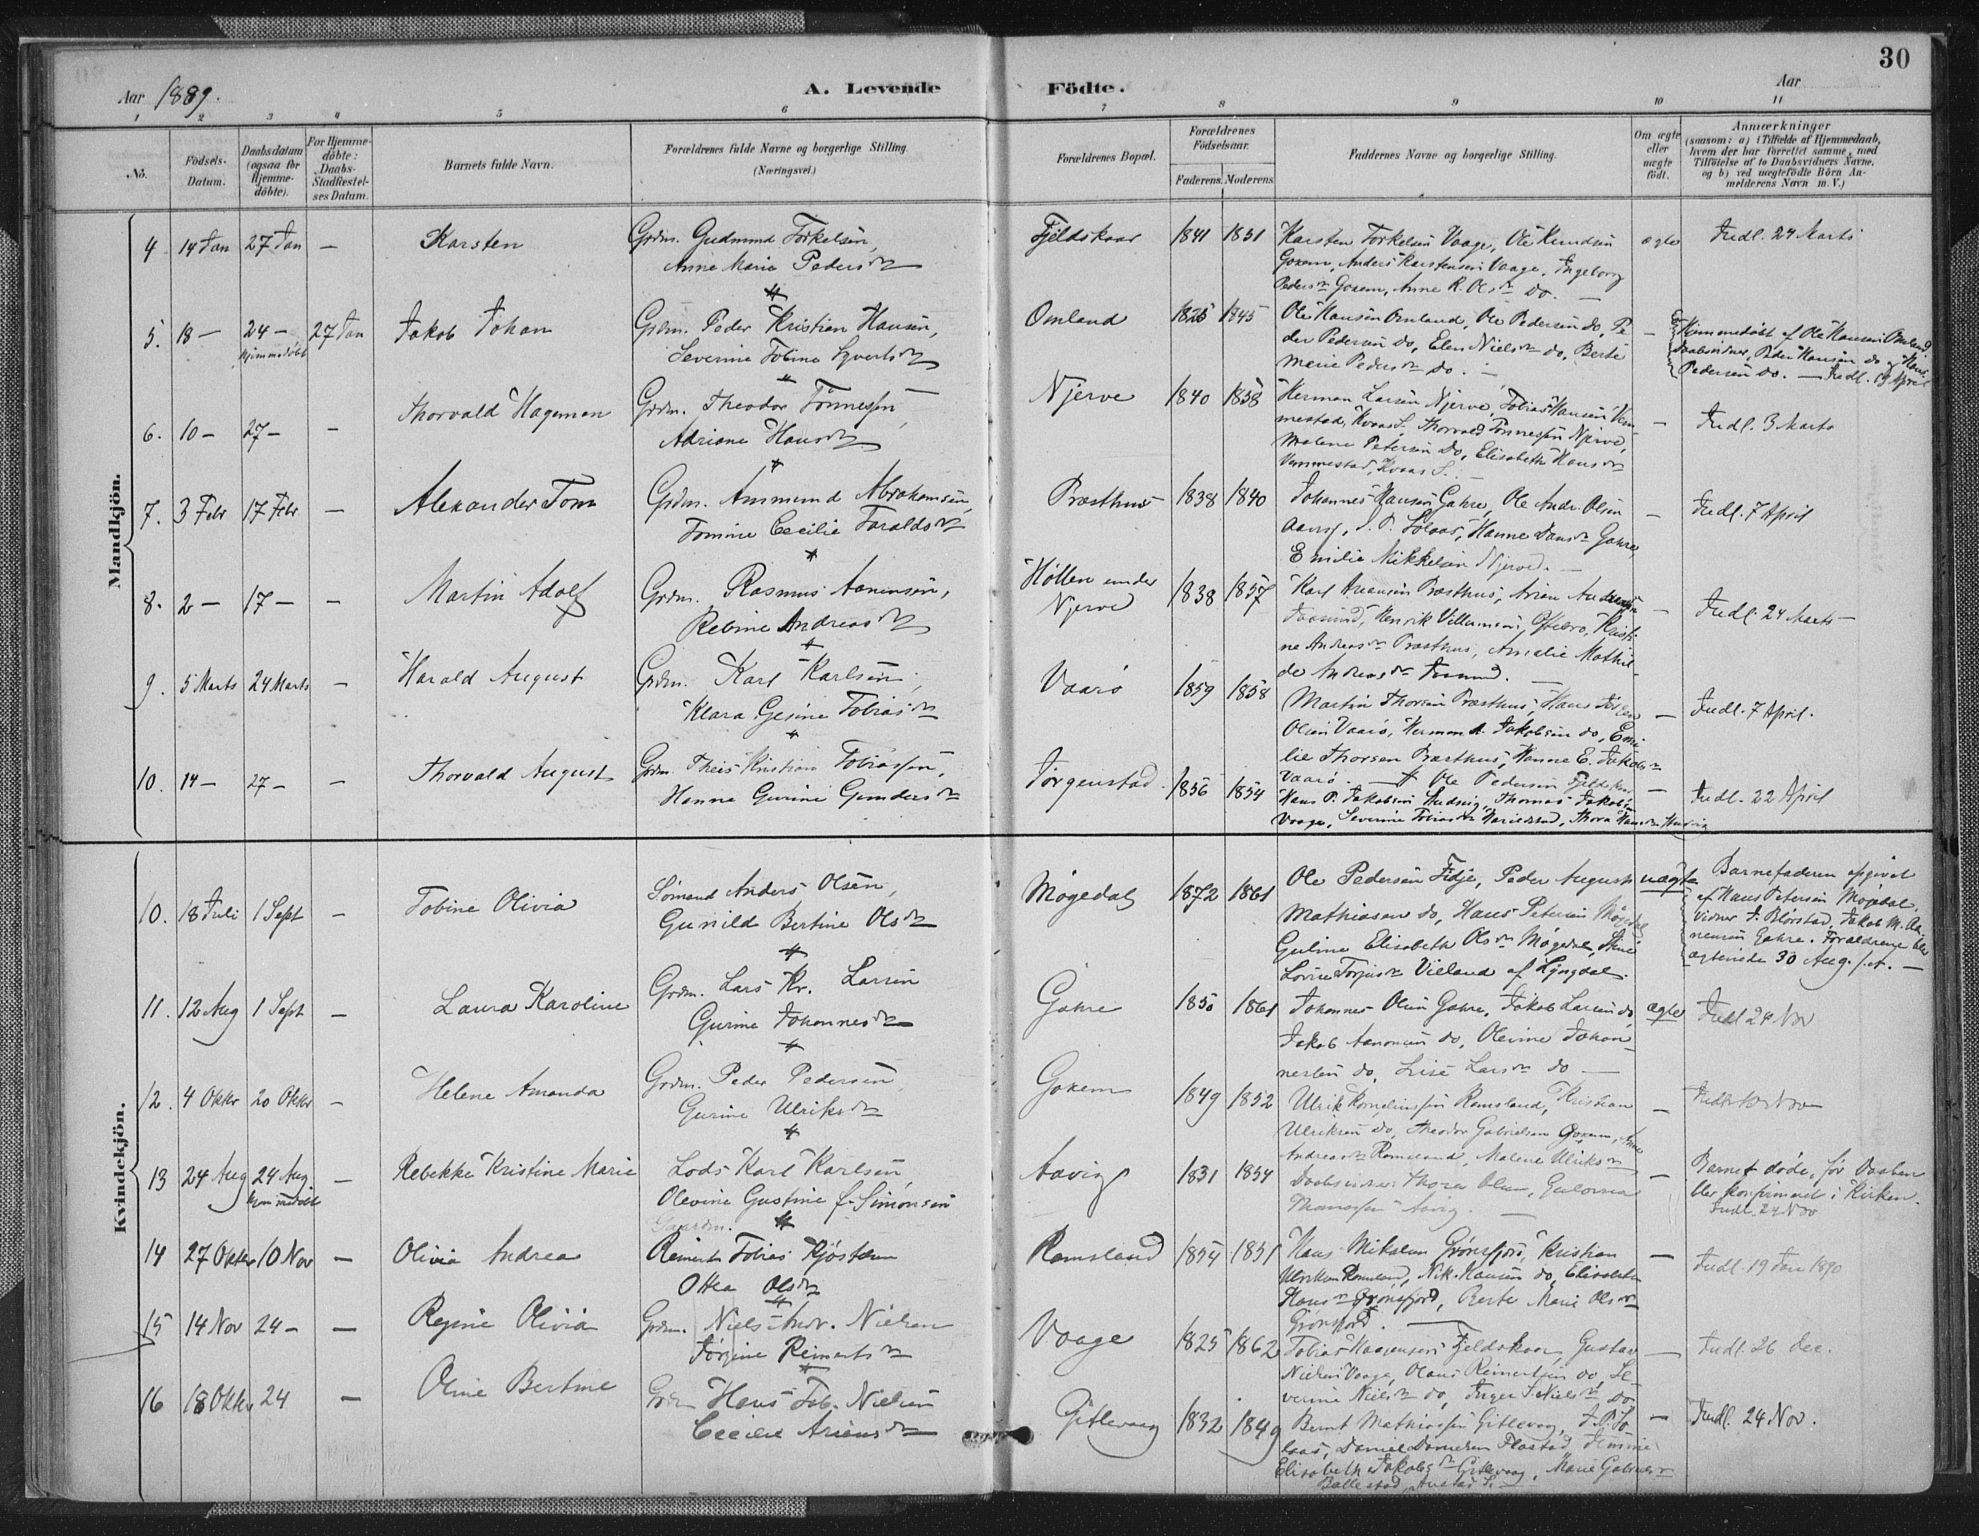 30
Aar 1889.
A. Levende Födte.
Aar
1 2 3 4 5 6 7 8 9 10 11
No.
Födsels-Datum.
Daabsdatum (ogsaa for Hjemmedöbte).
For Hjemmedöbte: Daabs-Stadfæstelses Datum.
Barnets fulde Navn.
Forældrenes fulde Navne og borgerlige Stilling. (Næringsvei.)
Forældrenes Bopæl.
Forældrenes Födselsaar.
Faderens. Moderens.
Faddernes Navne og borgerlige Stilling.
Om ægte eller uægte födt.
Anmærkninger
(saasom: a) i Tilfælde af Hjemmedaab, hvem der har forrettet samme, med Tilföielse af to Daabsvidners Navne, og b) ved uægtefödte Börn Anmelderens Navn m. V.)
Mandkjön.
4. 14 Jan 27 Jan — Karsten
Grdm. Gudmund Torkelsen,
Anne Marie Pedersdr
Fjeldskaar 1841 1851
Karsten Torkelsen Vaage, Ole Knudsen
Goxem, Anders Karstensen Vaage, Ingeborg
Pedersdr Goxem, Anne R. Olsdr do. —
ægte Indl. 24 Marts
5. 18 — 24 — hjemmedöbt 27 Jan Jakob Johan
Grdm. Peder Kristian Hansen,
Severine Tobine Syvertsdr
Omland 1825 1845
Ole Hansen Omland, Ole Pedersen do, Pe-
der Pedersen do, Elen Nielsdr do, Berte
Marie Pedersdr do. —
— Hjemmedöbt af Ole Hansen Omland
Daabsvidner, Peder Hansen do og Hans
Pedersen do. — Indl. 19 April
6. 10 — 27 — — Thorvald Hageman
Grdm. Theodor Tönnessen,
Adriane Hansdr
Njerve 1840 1858
Herman Larsen Njerve, Tobias Hansen Vem-
mestad, Kvaas S. Thorvald Tönnessen Njerve,
Malene Petersen do, Elisabeth Hansdr
Vemmestad, Kvaas S.
— Indl. 3 Marts
7. 3 Febr 17 Febr — Alexander Tom
Grdm. Ammund Abrahamsen,
Tomine Cecilie Taraldsdr
Præsthus 1838 1840
Johannes Hansen Gahre, Ole Andr. Olsen
Hanne Gahre,
Emilie Mikkelsen Njerve. —
— Indl. 7 April
8. 2 — 17 — — Martin Adolf
Grdm. Rasmus Aanensen,
Rebine Andreasdr
Höllen under Njerve 1838 1857
Præsthus,
Henrik Villumsen, Kristi-
ne Andreasdr Præsthus, Amalie Mathil-
de Andreasdr
— Indl. 24 Marts —
9. 5 Marts 24 Marts — Harald August
Grdm. Karl Karlsen,
Klara Gesine Tobiasdr
Vaarö 1859 1858
Martin Thorsen Præsthus, Hans
Olsen Vaarö, Herman A. Jakobsen do, Emi-
lie Thorsen Præsthus, Hanne E. Jakobsdr
Vaarö. —
— Indl. 7 April.
10. 14 — 27 — — Thorvald August
Grdm. Theis Kristian Tobiassen,
Hanne Gurine Gundersdr
Jörgenstad 1856 1854
Ole Pedersen Fjeldskaar
Hans P. Jakobsen Thomas Jakobsen
Vaage, Severine Tobiasdr Thora Hansdr
— Indl. 22 April
Kvindekjön.
10. 18 Juli 1 Sept — Tobine Olivia
Sömand Anders Olsen,
Gunild Bertine Olsdr
Mögedal 1872 1861
Ole Pedersen Fidje, Peder August
Mathiasen do, Hans Petersen Mögedal
Guline Elisabeth Olsdr Mögedal,
Lovise Torjusdr Vieland af Lyngdal.
uægte Barnefaderen opgivet
af Hans Petersen Mögedal,
Vidner Jakob M. Aa-
nensen Gahre. Forældrene blev
ægteviede 30 Aug. s.A. —
11. 12 Aug 1 Sept — Laura Karoline
Grdm. Lars Kr. Larsen
Gurine Johannesdr
Gahre 1850 1861
Johannes Olsen Gahre, Jakob Larsen do,
Jakob Aanonsen do, Olevine Johan-
nesen do, Lise Larsdr do —
ægte Indl 24 Nov
12. 4 Oktbr 20 Oktbr — Helene Amanda
Grdm. Peder Pedersen,
Gurine Ulriksdr
Goxem 1849 1852
Ulrik Korneliussen Ramsland, Kristian
Ulriksen do, Theodor Gabrielsen Goxem, Anne
Andreasdr Ramsland, Malene Ulriksdr
—
13 24 Aug 24 Aug hjemmedöbt — Rebekke Kristine Marie
Lods Karl Karlsen,
Olevine Gustine f. Simonsen
Aavig 1831 1854
Daabsvidner: Thora Olsen, Gulovna
Thomassen Aavig. —
— Barnet döde, för Daaben
blev konfirmeret i Kirken.
Indl. 24 Nov
14 27 Oktbr 10 Nov — Olivia Andrea
Gaardm.
Reinert Tobias Kjöstesen
Ottea Olsdr
Ramsland 1854 1851
Hans Mikalsen Grönsfjord, Kristian
Ulriksen Ramsland, Nik. Hansen do, Elisabeth
Hansdr Grönsfjord, Berte Marie Olsdr
Grönsfjord. —
— Indl. 19 Jan 1890
15 14 Nov 24 — — Regine Olivia
Grdm. Niels Andr. Nielsen
Jörgine Reinertsdr
Vaage 1825 1862
Tobias Haagensen Fjeldskaar Gustav
Nielsen Vaage, Olaus Reinertsen do, Se-
verine Nielsdr do, Inger S Nielsdr do
— Indl. 26 Dec.
16 18 Oktbr 24 — Oline Bertine
Grdm Hans Tob. Nielsen
Cecilie Ariensdr
Gitlevaag 1832 1849
Bernt Mathiassen Gitlevaag, J. P. So-
laas, Daniel Danielsen Flastad,
Elisabeth Jakobsdr Gitlevaag, Marie Gabrielsdr
Ballestad, Austad S. —
— Indl. 24 Nov.